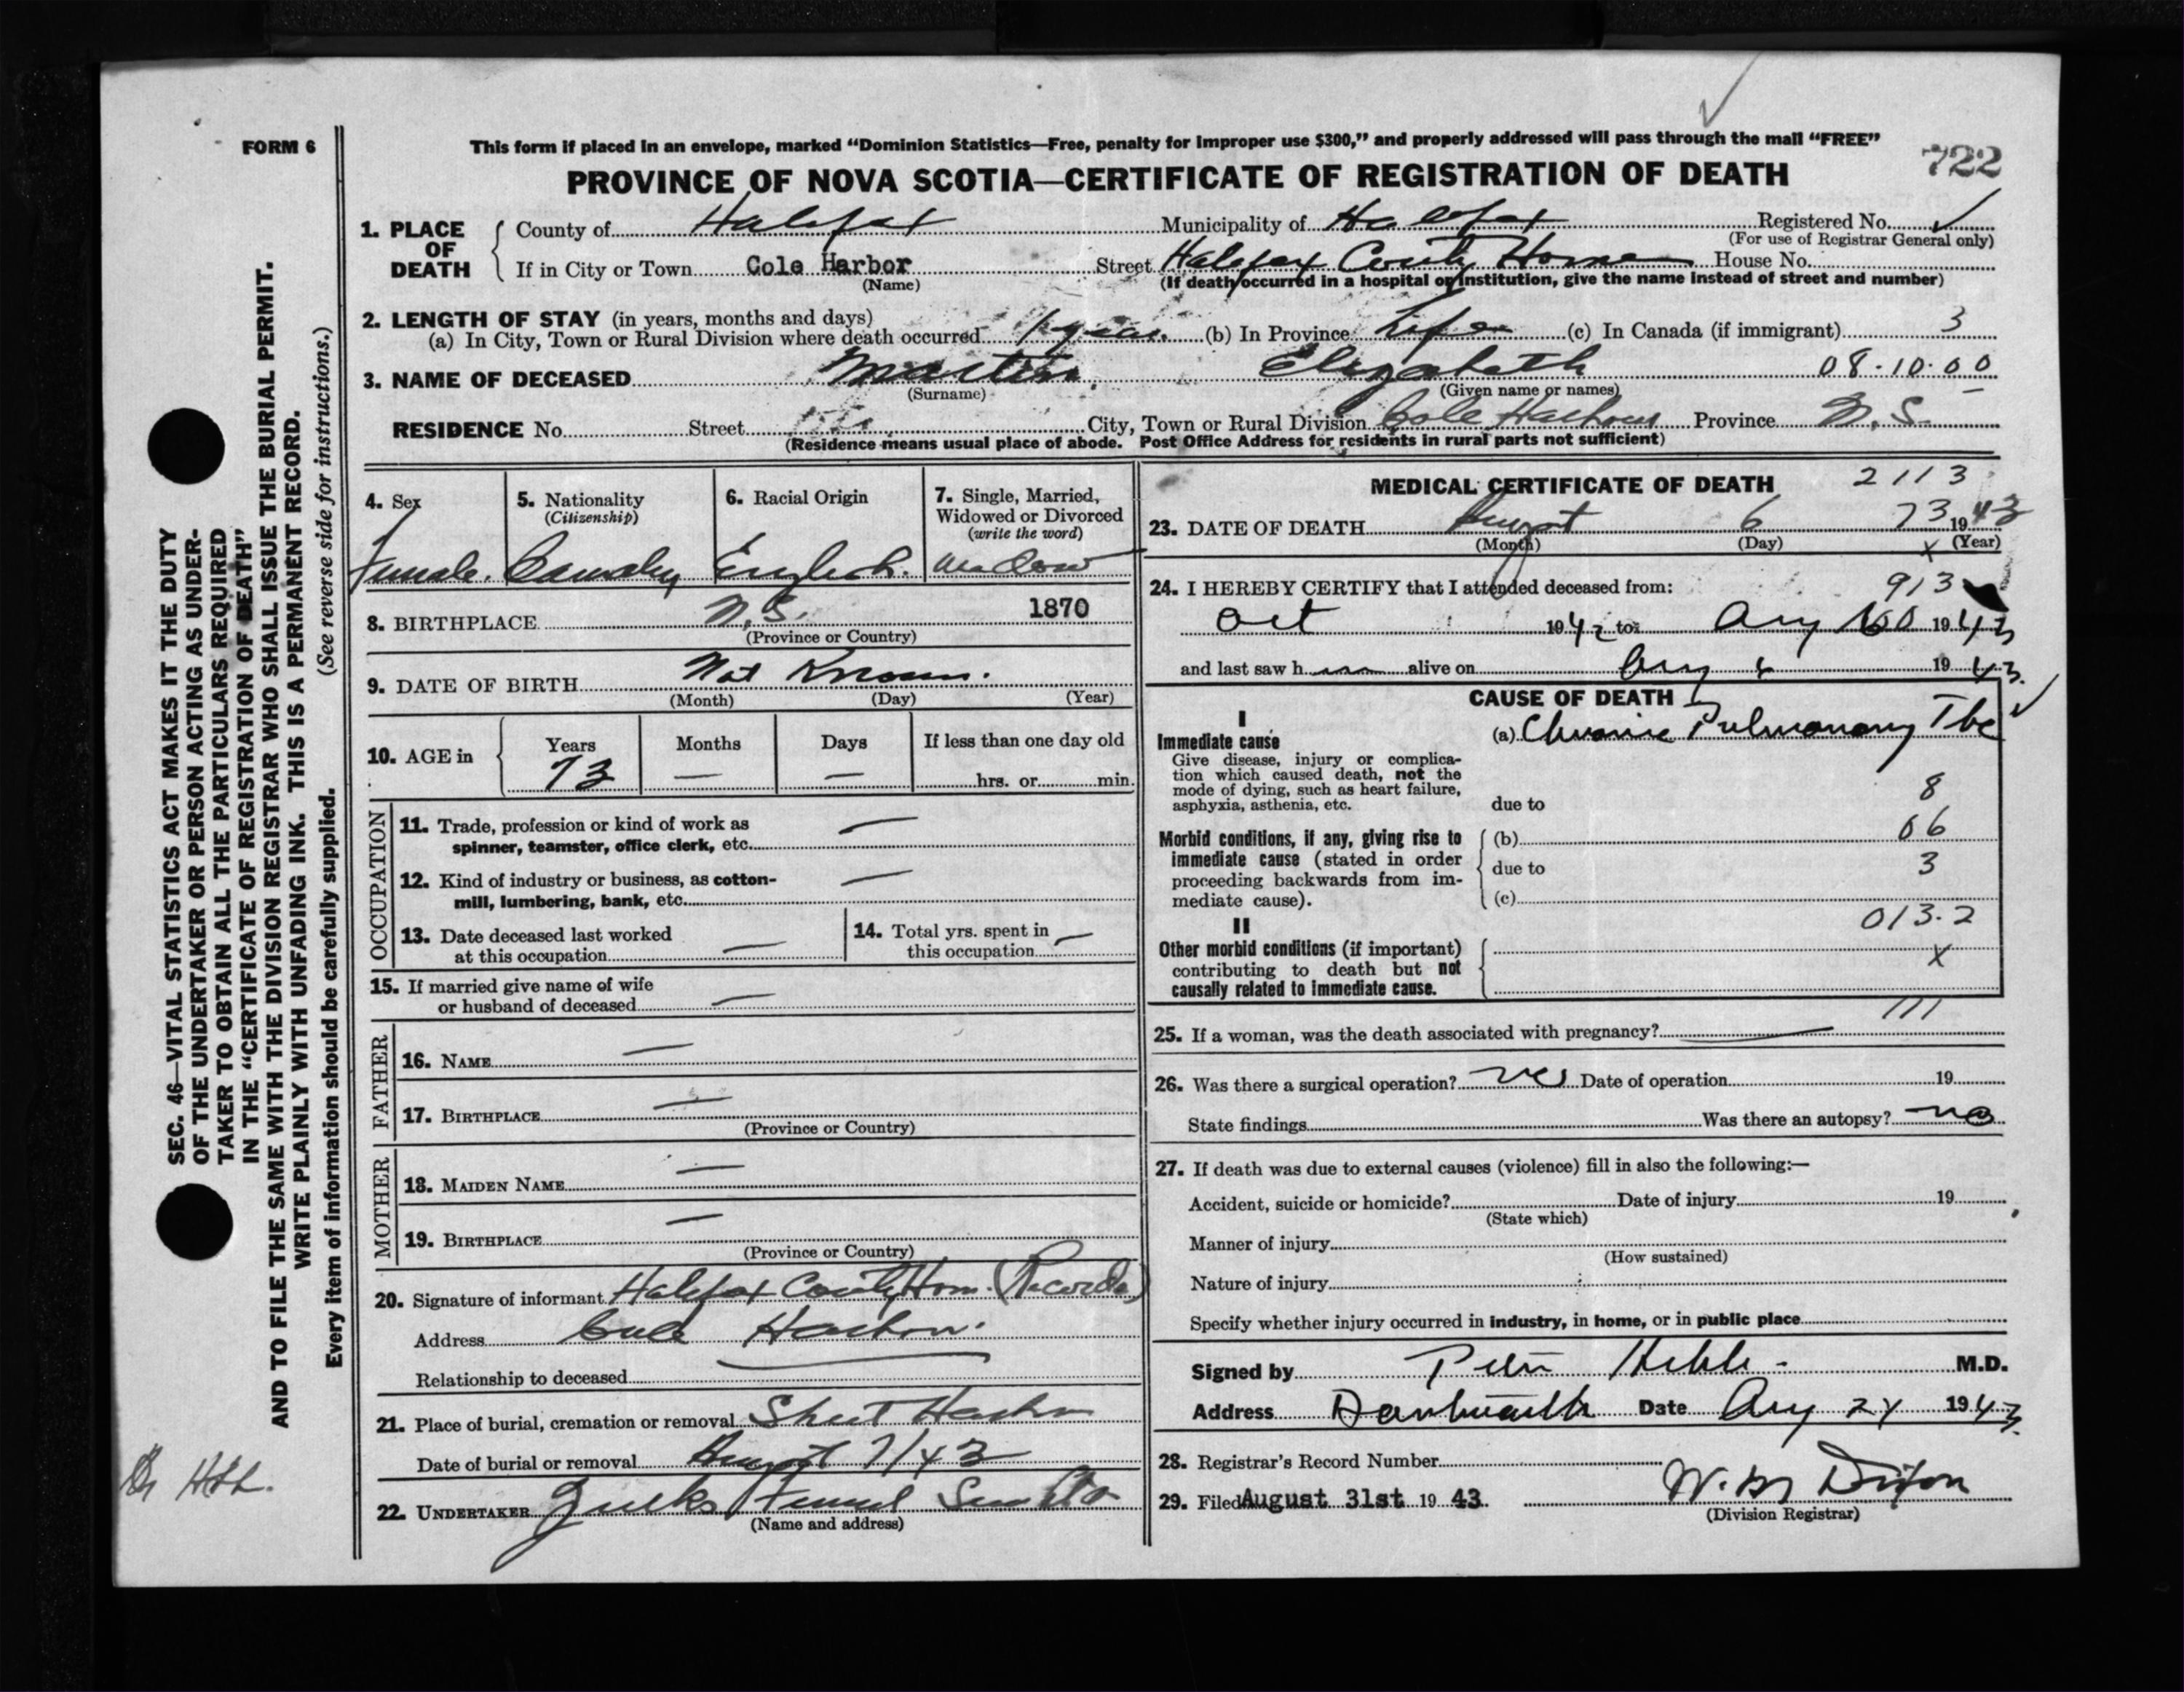 FORM 6
This form if placed in an envelope, marked “Dominion Statistics—Free, penalty for improper use $300,” and properly addressed will pass through the mail “FREE”
722
PROVINCE OF NOVA SCOTIA—CERTIFICATE OF REGISTRATION OF DEATH
SEC. 46—VITAL STATISTICS ACT MAKES IT THE DUTY
OF THE UNDERTAKER OR PERSON ACTING AS UNDER-
TAKER TO OBTAIN ALL THE PARTICULARS REQUIRED
IN THE “CERTIFICATE OF REGISTRATION OF DEATH”
AND TO FILE THE SAME WITH THE DIVISION REGISTRAR WHO SHALL ISSUE THE BURIAL PERMIT.
WRITE PLAINLY WITH UNFADING INK. THIS IS A PERMANENT RECORD.
Every item of information should be carefully supplied. (See reverse side for instructions.)
1. PLACE OF DEATH
County of Halifax Municipality of Halifax Registered No.
(For use of Registrar General only)
If in City or Town Cole Harbor Street Halifax County Home House No.
(Name) (If death occurred in a hospital or institution, give the name instead of street and number)
2. LENGTH OF STAY (in years, months and days)
(a) In City, Town or Rural Division where death occurred 1 year. (b) In Province Life (c) In Canada (if immigrant) 3
3. NAME OF DECEASED Martin, Elizabeth 08-10-00
(Surname) (Given name or names)
RESIDENCE No. Street City, Town or Rural Division Cole Harbour Province N.S.
(Residence means usual place of abode. Post Office Address for residents in rural parts not sufficient)
4. Sex
Female.
5. Nationality
(Citizenship)
6. Racial Origin
English.
7. Single, Married,
Widowed or Divorced
(write the word)
Widow
8. BIRTHPLACE N.S. 1870
(Province or Country)
9. DATE OF BIRTH Not Known.
(Month) (Day) (Year)
10. AGE in
Years Months Days If less than one day old
73 — — hrs. or min.
OCCUPATION
11. Trade, profession or kind of work as
spinner, teamster, office clerk, etc. —
12. Kind of industry or business, as cotton-
mill, lumbering, bank, etc. —
13. Date deceased last worked
at this occupation —
14. Total yrs. spent in
this occupation —
15. If married give name of wife
or husband of deceased —
FATHER
16. NAME —
17. BIRTHPLACE —
(Province or Country)
MOTHER
18. MAIDEN NAME —
19. BIRTHPLACE —
(Province or Country)
20. Signature of informant Halifax County Home (Records)
Address Cole Harbour.
Relationship to deceased —
21. Place of burial, cremation or removal Sheet Harbor
Date of burial or removal August 7/43
22. UNDERTAKER
(Name and address)
MEDICAL CERTIFICATE OF DEATH 2113
23. DATE OF DEATH August 6 73 1943
(Month) (Day) (Year)
x
24. I HEREBY CERTIFY that I attended deceased from: 913
Oct 1942 to Aug 1943
and last saw h alive on Aug 6 1943.
CAUSE OF DEATH
I
Immediate cause
Give disease, injury or complica-
tion which caused death, not the
mode of dying, such as heart failure,
asphyxia, asthenia, etc.
(a) Chronic Pulmonary Tbc
due to 8
Morbid conditions, if any, giving rise to
immediate cause (stated in order
proceeding backwards from im-
mediate cause).
(b) 06
due to 3
(c)
013.2
II
Other morbid conditions (if important)
contributing to death but not
causally related to immediate cause.
X
111
25. If a woman, was the death associated with pregnancy? —
26. Was there a surgical operation? Date of operation 19
State findings Was there an autopsy? no
27. If death was due to external causes (violence) fill in also the following:—
Accident, suicide or homicide? Date of injury 19
(State which)
Manner of injury
(How sustained)
Nature of injury
Specify whether injury occurred in industry, in home, or in public place
Signed by M.D.
Address Dartmouth Date Aug 24 1943.
28. Registrar's Record Number
29. Filed August 31st 1943. Dixon
(Division Registrar)